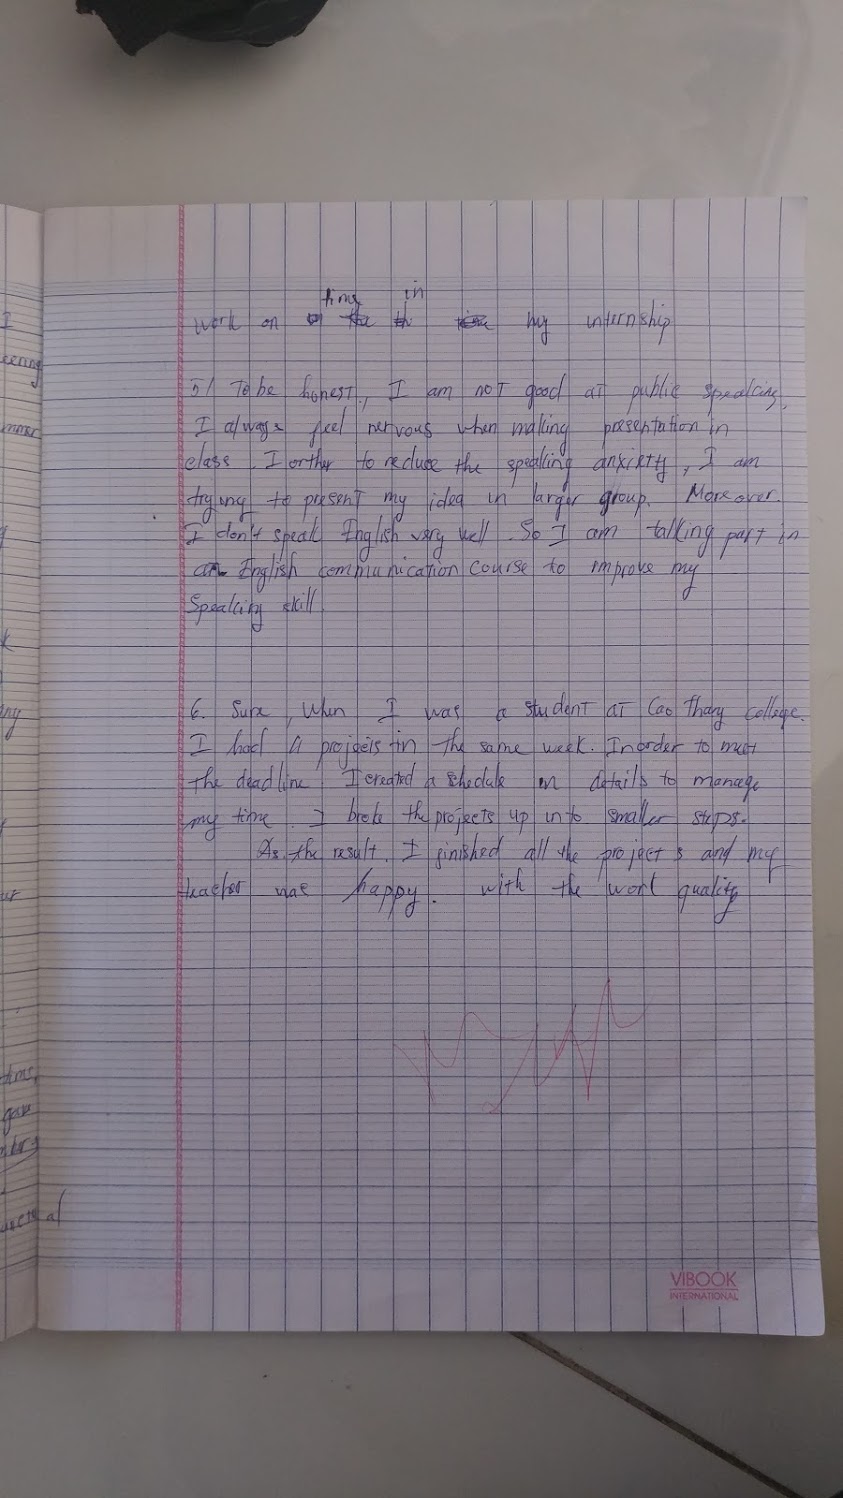 work on time in my internship
5/ To be honest, I am not good at public speaking.
I always feel nervous when making presentation in
class. I orther to reduce the speaking anxiety, I am
trying to present my idea in larger group. Moreover.
I don't speak English very well. So I am talking part in
an English communication course to improve my
Speaking skill.
6. Sure, When I was a student at Cao Thang college.
I had 4 projects in the same week. In order to meet
the deadline. I created a schedule in details to manage
my time. I broke the projects up into smaller steps.
As the result, I finished all the projects and my
teacher was happy. with the work quality
VIBOOK
INTERNATIONAL